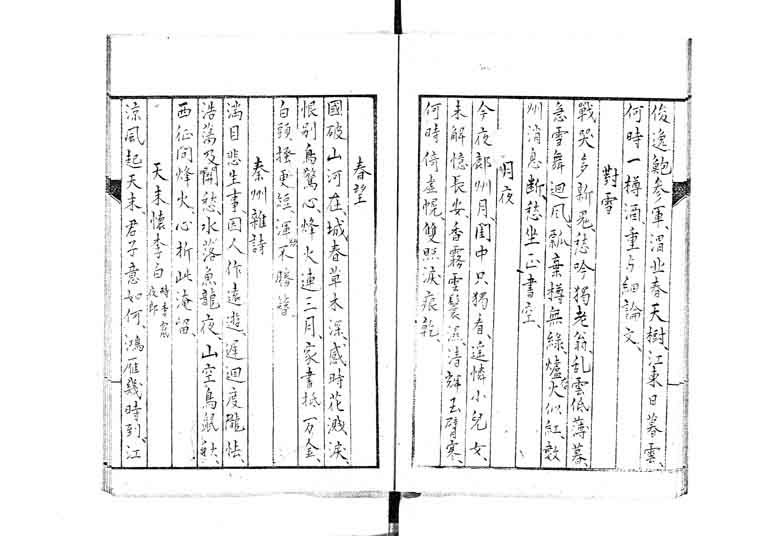 俊逸鮑參軍、渭北春天樹、江東日暮雲、
何時一樽酒、重与細論文、
對雪
戰哭多新鬼、愁吟獨老翁、乱雲低薄暮、
急雪舞迴風、瓢棄樽無緑、爐存火似紅、數
州消息断、愁坐正書空、
月夜
今夜鄜州月、閨中只獨看、遥憐小兒女、
未解憶長安、香霧雲鬟濕、清輝玉臂寒、
何時倚虚幌、雙照淚痕乾、
春望
國破山河在、城春草木深、感時花濺淚、
恨別鳥驚心、烽火連三月、家書抵万金、
白頭搔更短、渾欲不勝簪
秦州雜詩
満目悲生事、因人作遠遊、遲迴度隴怯、
浩蕩及関愁、水落魚龍夜、山空鳥鼠秋、
西征問烽火、心折此淹留、
天末懷李白 時李竄夜郎
涼風起天末、君子意如何、鴻雁幾時到、江